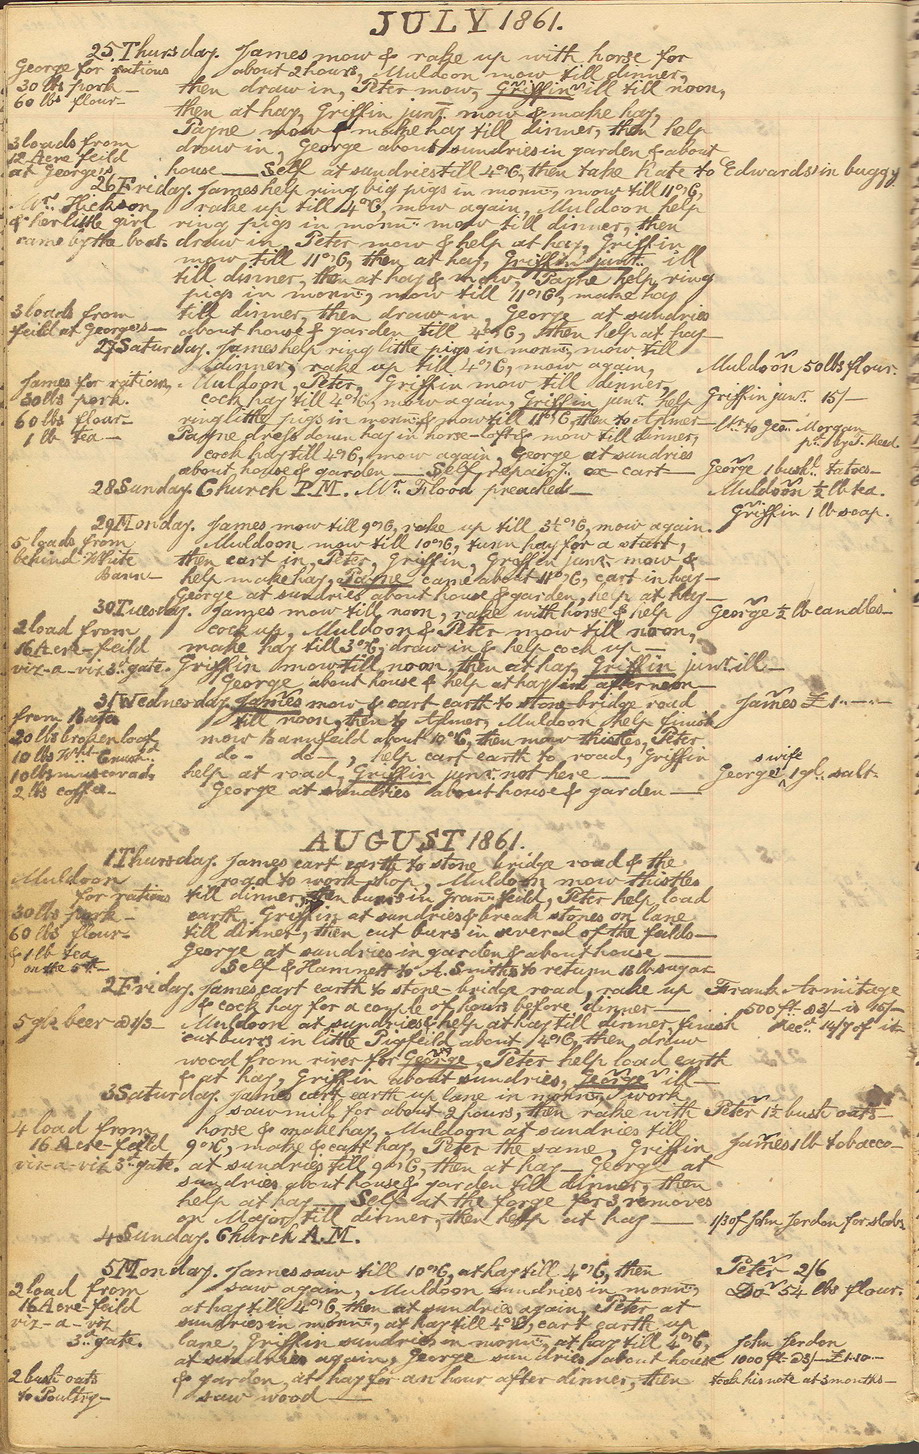 JULY 1861.
25 Thursday. James mow & rake up with horse for
George for rations about 2 hours, Muldoon mow till dinner,
30 lbs pork — then draw in, Peter mow, Griffin ill till noon,
60 lbs flour — then at hay, Griffin junr. mow & make hay,
Payne mow & make hay till dinner, then help
3 loads from draw in, George about sundries in garden & about
12 Acre feild
at George's house — Self at sundries till 4 o'C, then take Kate to Edwards's in buggy
26 Friday. James help ring big pigs in mornn., mow till 11 o'C,
Mrs. Hickson rake up till 4 o'C, mow again, Muldoon help
& her little girl ring pigs in mornn: mow till dinner, then
came by the boat. draw in, Peter mow & help at hay, Griffin
mow till 11 o'C, then at hay, Griffin junr. ill
till dinner, then at hay & mow, Payne help ring
pigs in mornn:, mow till 11 o'C, make hay
3 loads from till dinner, then draw in, George at sundries
feild at George's — about house & garden till 4 o'C, then help at hay
27 Saturday. James help ring little pigs in mornn:, mow till
dinner, rake up till 4 o'C, mow again, Muldoon 50 lbs flour.
James for rations, Muldoon, Peter, Griffin mow till dinner,
30 lbs pork. cock hay till 4 o'C, mow again, Griffin junr. help Griffin junr. 15/—
60 lbs flour — ring little pigs in mornn: & mow till 11 o'C, then to Aylmer —
1 lb tea — Payne dress down hay in horse-loft & mow till dinner, to Geo: Morgan
cock hay till 4 o'C, mow again, George at sundries
about house & garden — Self repairg. ox cart — George 1 bushl. tatoes —
28 Sunday. Church P.M. Mr. Flood preached — Muldoon ½ lb tea.
Griffin 1 lb soap.
29 Monday. James mow till 9 o'C, rake up till 3½ o'C, mow again.
5 loads from Muldoon mow till 10 o'C, turn hay for a start,
behind White then cart in, Peter, Griffin, Griffin junr. mow &
Barn — help make hay, Payne came about 11 o'C, cart in hay —
George at sundries about house & garden, help at hay —
30 Tuesday. James mow till noon, rake with horse & help George ½ lb candles —
2 load from cock up, Muldoon & Peter mow till noon,
16 Acre-feild make hay till 3 o'C, draw in & help cock up —
viz-a-viz 3rd. gate. Griffin mow till noon, then at hay, Griffin junr. ill —
George about house & help at hay in afternoon —
31 Wednesday. James mow & cart earth to stone-bridge road James £1 — —
till noon, then to Aylmer, Muldoon help finish
20 lbs broken loaf mow Barn feild about 10 o'C, then mow thistles, Peter
10 lbs Wht. Crush'd do — do —, help cart earth to road, Griffin
10 lbs muscovado help at road, Griffin junr. not here — George's wife 1 gl. salt.
2 lbs coffee — George at sundries about house & garden —
AUGUST 1861.
1 Thursday. James cart earth to stone bridge road & the
Muldoon road to work shop, Muldoon mow thistles
for rations till dinner, then burrs in Gran: feild, Peter help load
30 lbs pork — earth, Griffin at sundries & break stones on lane
60 lbs flour — till dinner, then cut burs in several of the feilds —
& 1 lb tea George at sundries in garden & about house —
on the 5th — Self & Hamnett to A. Smith's to return 18 lb sugar
2 Friday. James cart earth to stone-bridge road, rake up Frank Armitage
& cock hay for a couple of hours before dinner — 500 ft. @ 3/— is 15/—
5 gls beer @ 1/3 Muldoon at sundries & help at hay till dinner, finish Recd. 14/7 of it
cut burrs in little Pigfeild about 4 o'C, then draw
wood from river for George, Peter help load earth
& at hay, Griffin about sundries, George ill —
3 Saturday. James cart earth up lane in mornn:, work
saw mill for about 2 hours, then rake with Peter 1½ bush oats —
4 load from horse & make hay, Muldoon at sundries till
16 Acre-feild 9 o'C, make & cart hay, Peter the same, Griffin James 1 lb tobacco —
viz-a-viz 3rd. gate. at sundries till 9 o'C, then at hay — George at
sundries about house & garden till dinner, then
help at hay — Self at the forge for 3 removes
on Major till dinner, then help at hay — 1/3 of John Jerdon for slabs
4 Sunday. Church A.M.
5 Monday. James saw till 10 o'C, at hay till 4 o'C, then Peter 2/6
2 load from saw again, Muldoon sundries in mornn:, Do. 54 lbs flour.
16 Acre-feild at hay till 4 o'C, then at sundries again, Peter at
viz-a-viz sundries in mornn:, at hay till 4 o'C, cart earth up
3rd. gate. lane, Griffin sundries in mornn:, at hay till 4 o'C, John Jerdon
at sundries again, George sundries about house 1000 ft. @ 3/— £1.10 —
2 bush oats & garden, at hay for an hour after dinner, then took his note at 3 months —
to Poultry — saw wood —